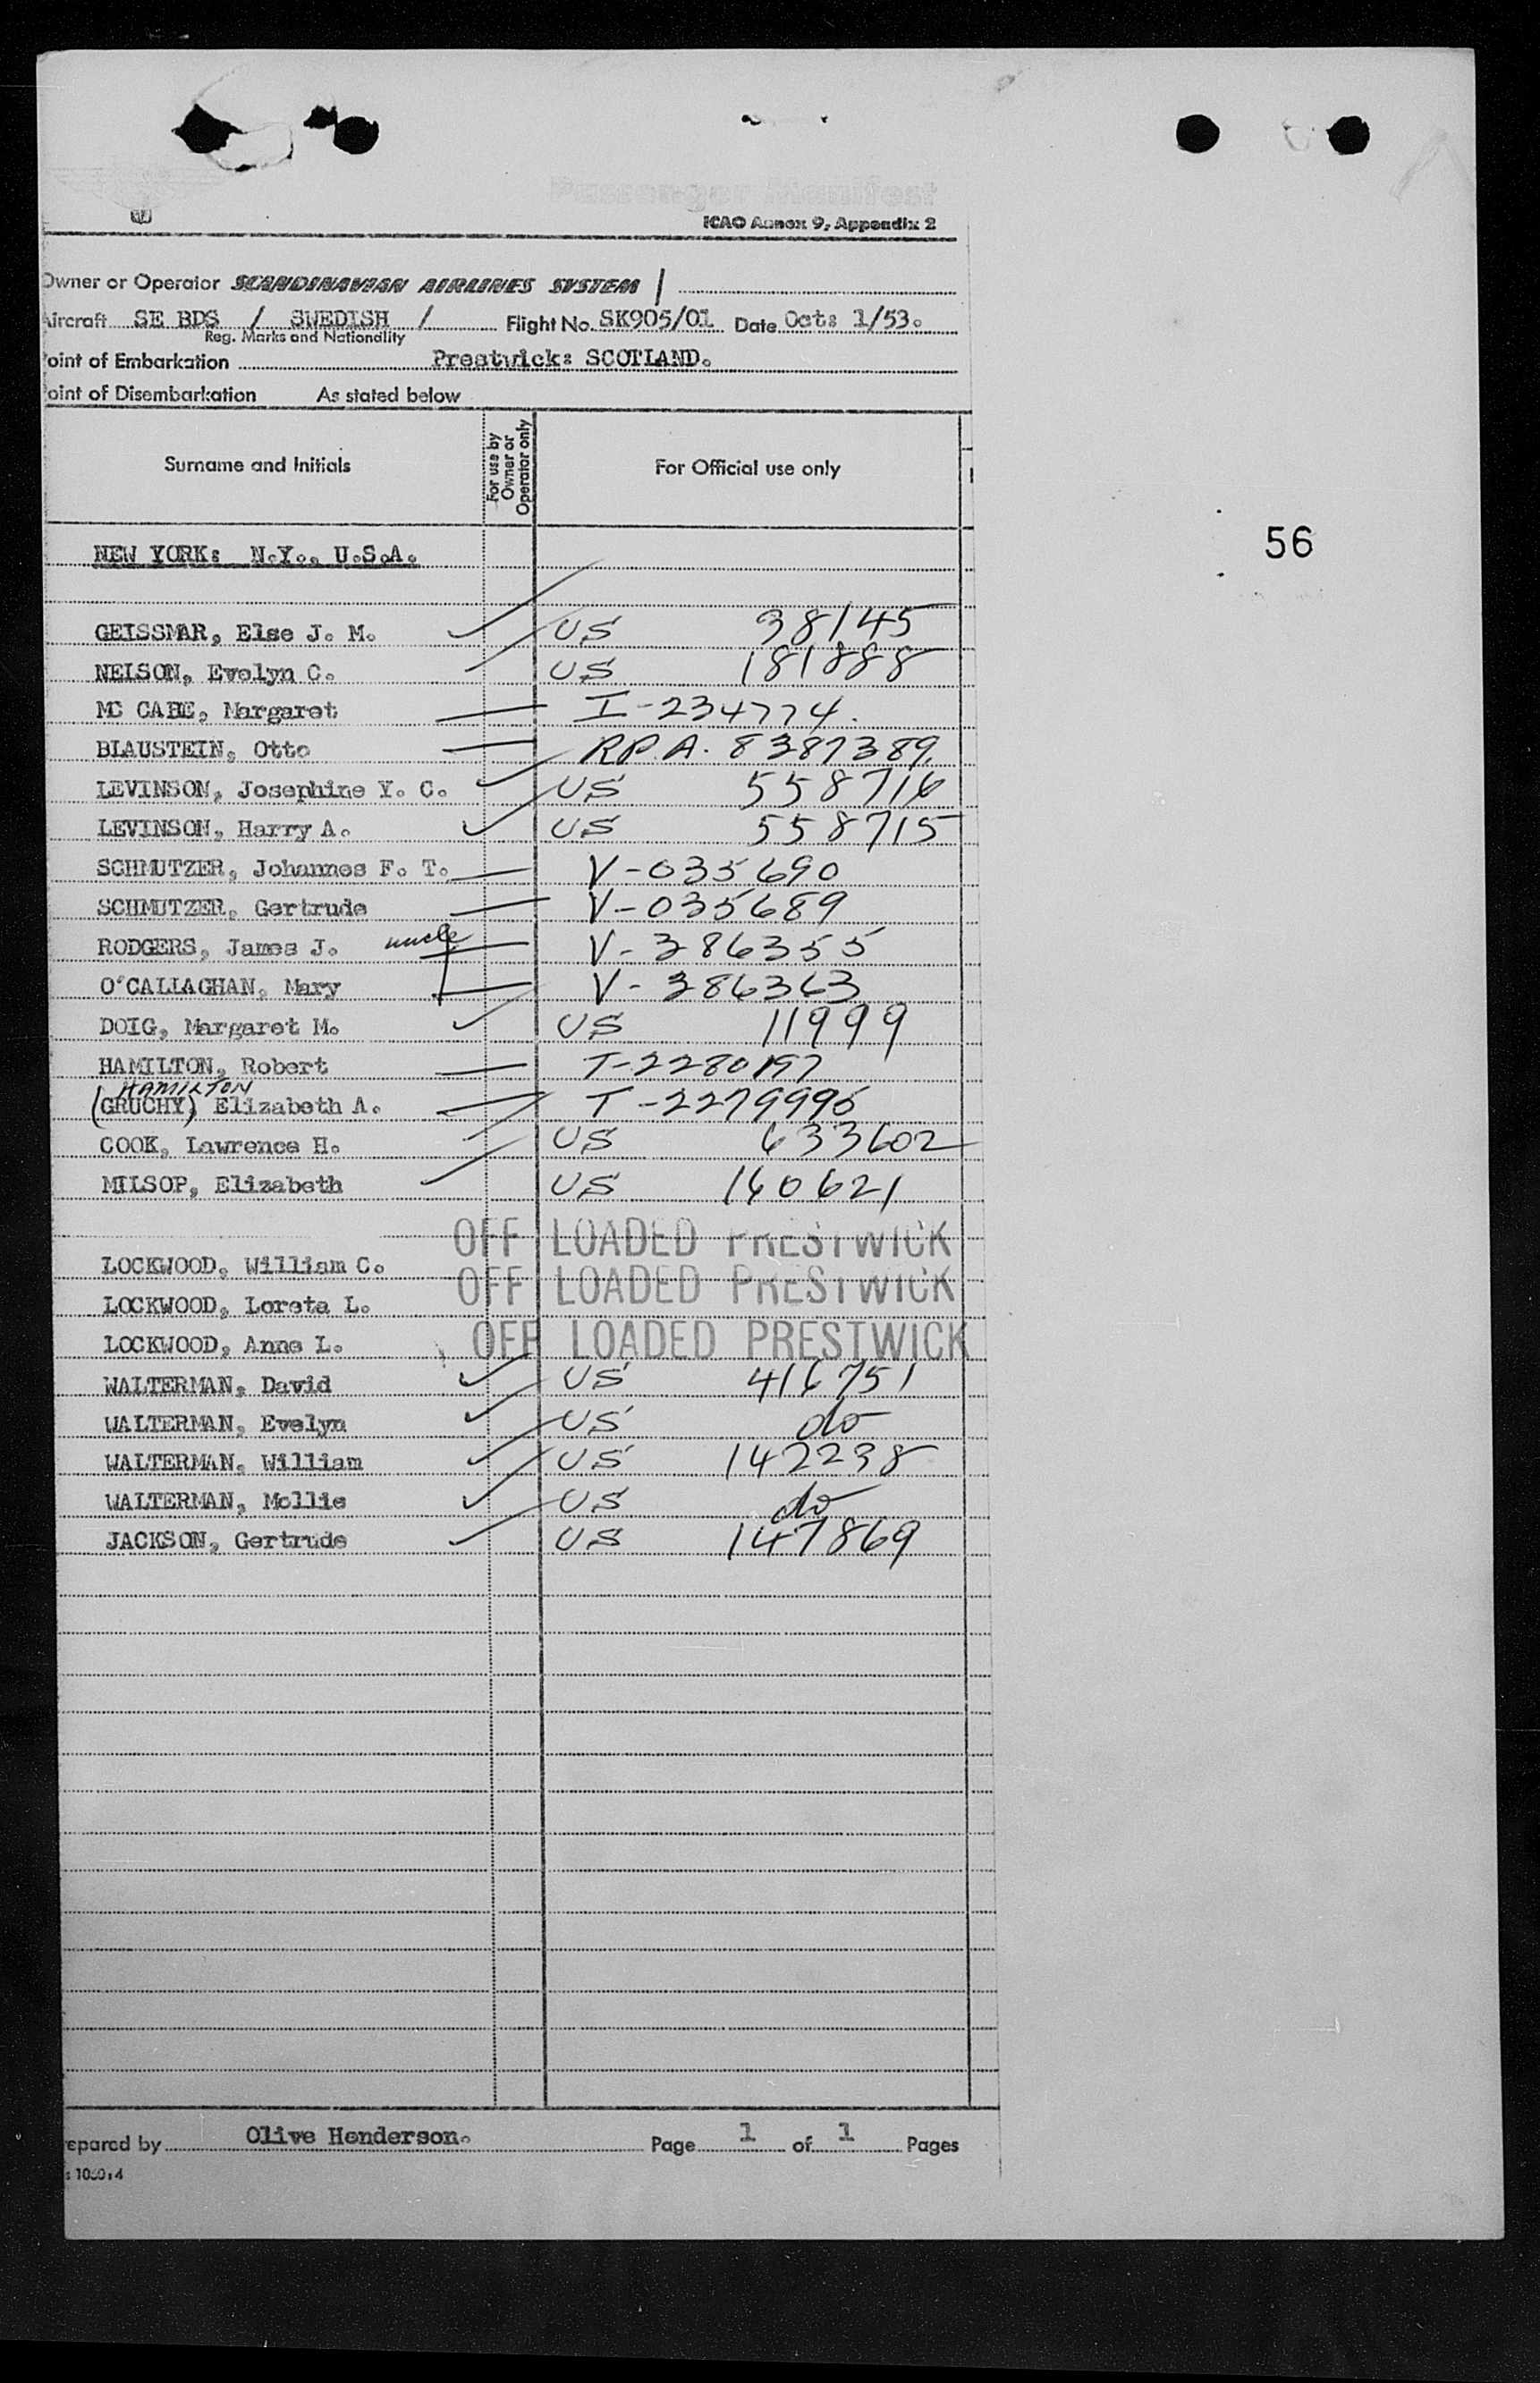 Passenger Manifest
ICAO Annex 9, Appendix 2
Owner or Operator SCANDINAVIAN AIRLINES SYSTEM /
Aircraft SE BDS / SWEDISH / Flight No. SK905/01 Date Oct: 1/53.
Reg. Marks and Nationality
oint of Embarkation Prestwick: SCOTLAND.
oint of Disembarkation As stated below
Surname and Initials For use by Owner or Operator only For Official use only
NEW YORK: N.Y., U.S.A.
56
GEISSMAR, Else J. M. US 38145
NELSON, Evelyn C. US 181888
MC CABE, Margaret I-234774.
BLAUSTEIN, Otto RP.A. 8387389.
LEVINSON, Josephine Y. C. US 558716
LEVINSON, Harry A. US 558715
SCHMUTZER, Johannes F. T. V-035690
SCHMUTZER, Gertrude V-035689
RODGERS, James J. uncle V-386355
O'CALLAGHAN, Mary V-386363
DOIG, Margaret M. US 11999
HAMILTON, Robert T-2280197
HAMILTON
(GRUCHY) Elizabeth A. T-2279996
COOK, Lawrence H. US 633602
MILSOP, Elizabeth US 160621
OFF LOADED PRESTWICK
LOCKWOOD, William C.
OFF LOADED PRESTWICK
LOCKWOOD, Loreta L.
LOCKWOOD, Anne L. OFF LOADED PRESTWICK
WALTERMAN, David US 416751
WALTERMAN, Evelyn US do
WALTERMAN, William US 142238
WALTERMAN, Mollie US do
JACKSON, Gertrude US 147869
epared by Olive Henderson. Page 1 of 1 Pages